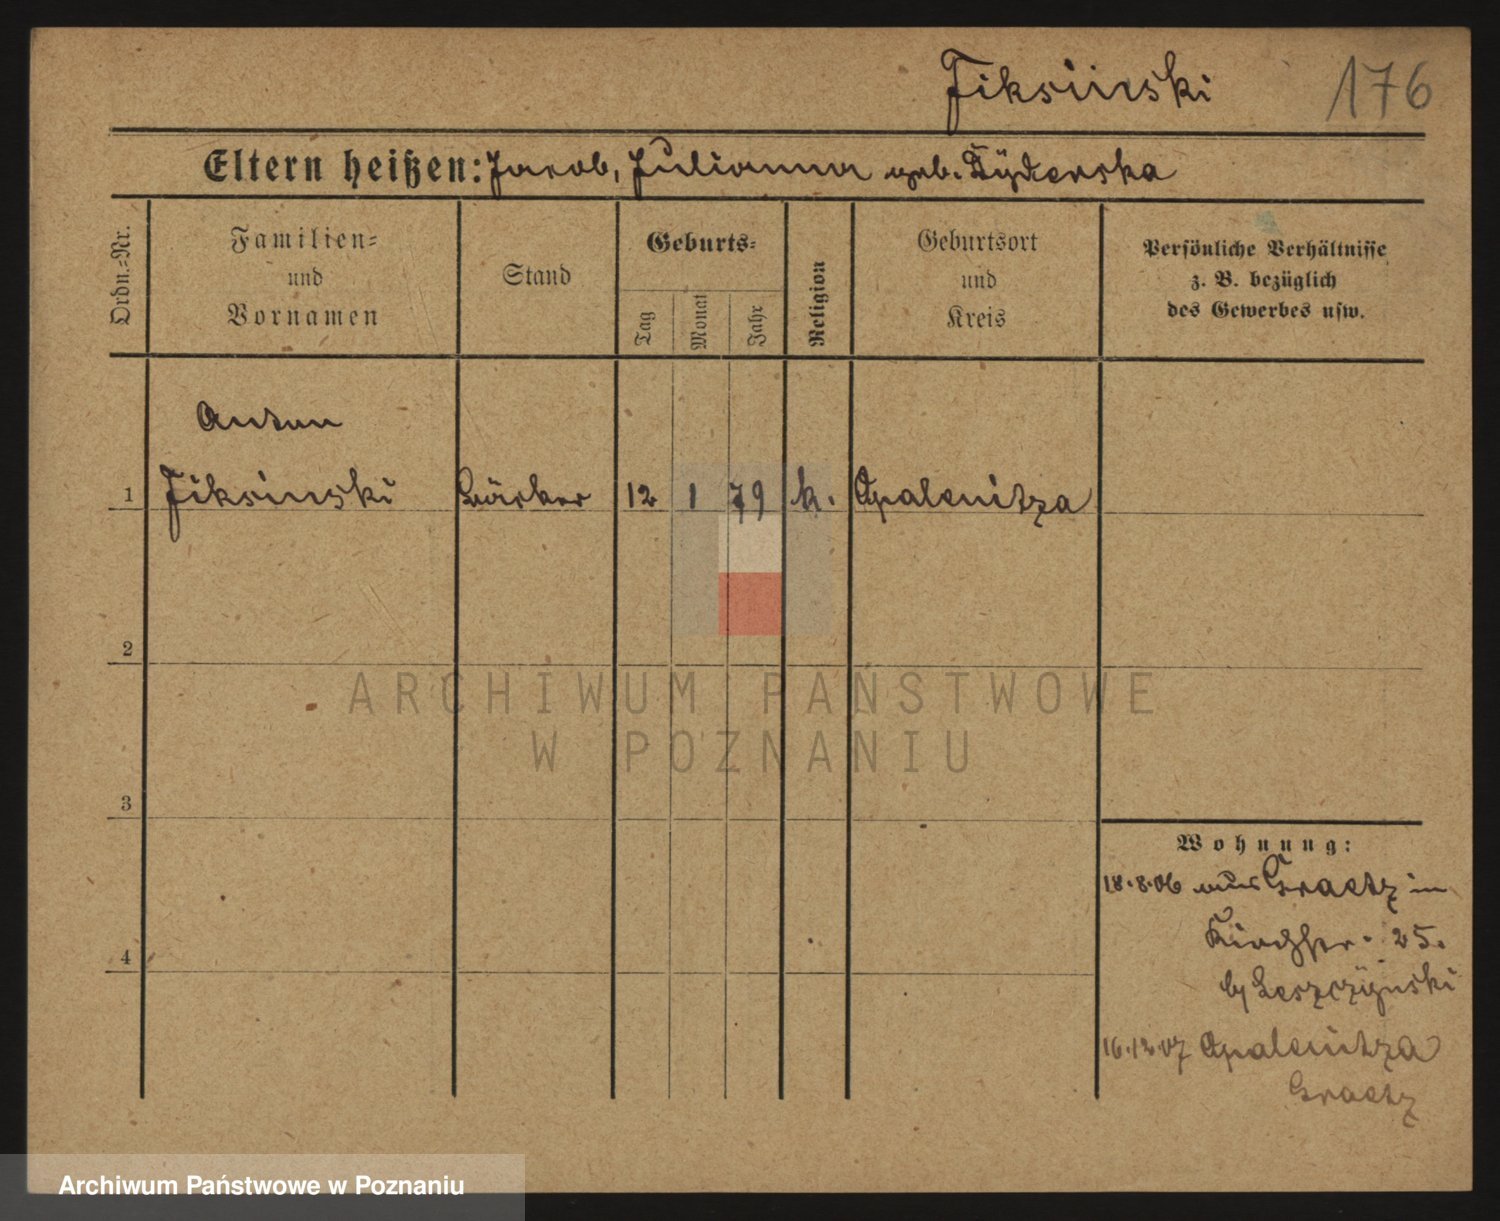 Fiksinski 176
Eltern heißen: Jacob, Julianna geb.
Ordn.-Nr.
Familien-
und
Vornamen
Stand
Geburts-
Tag
Monat
Jahr
Religion
Geburtsort
und
Kreis
Persönliche Verhältnisse
z. B. bezüglich
des Gewerbes usw.
Anton
1 Fiksinski Bäcker 12 1 79 k. Opalenitza
2
ARCHIWUM PAŃSTWOWE
W POZNANIU
3
Wohnung:
18.8.06 aus Graetz in
25.
by Leszczÿnski
4
16.12.07 Opalenitza
Graetz
Archiwum Państwowe w Poznaniu